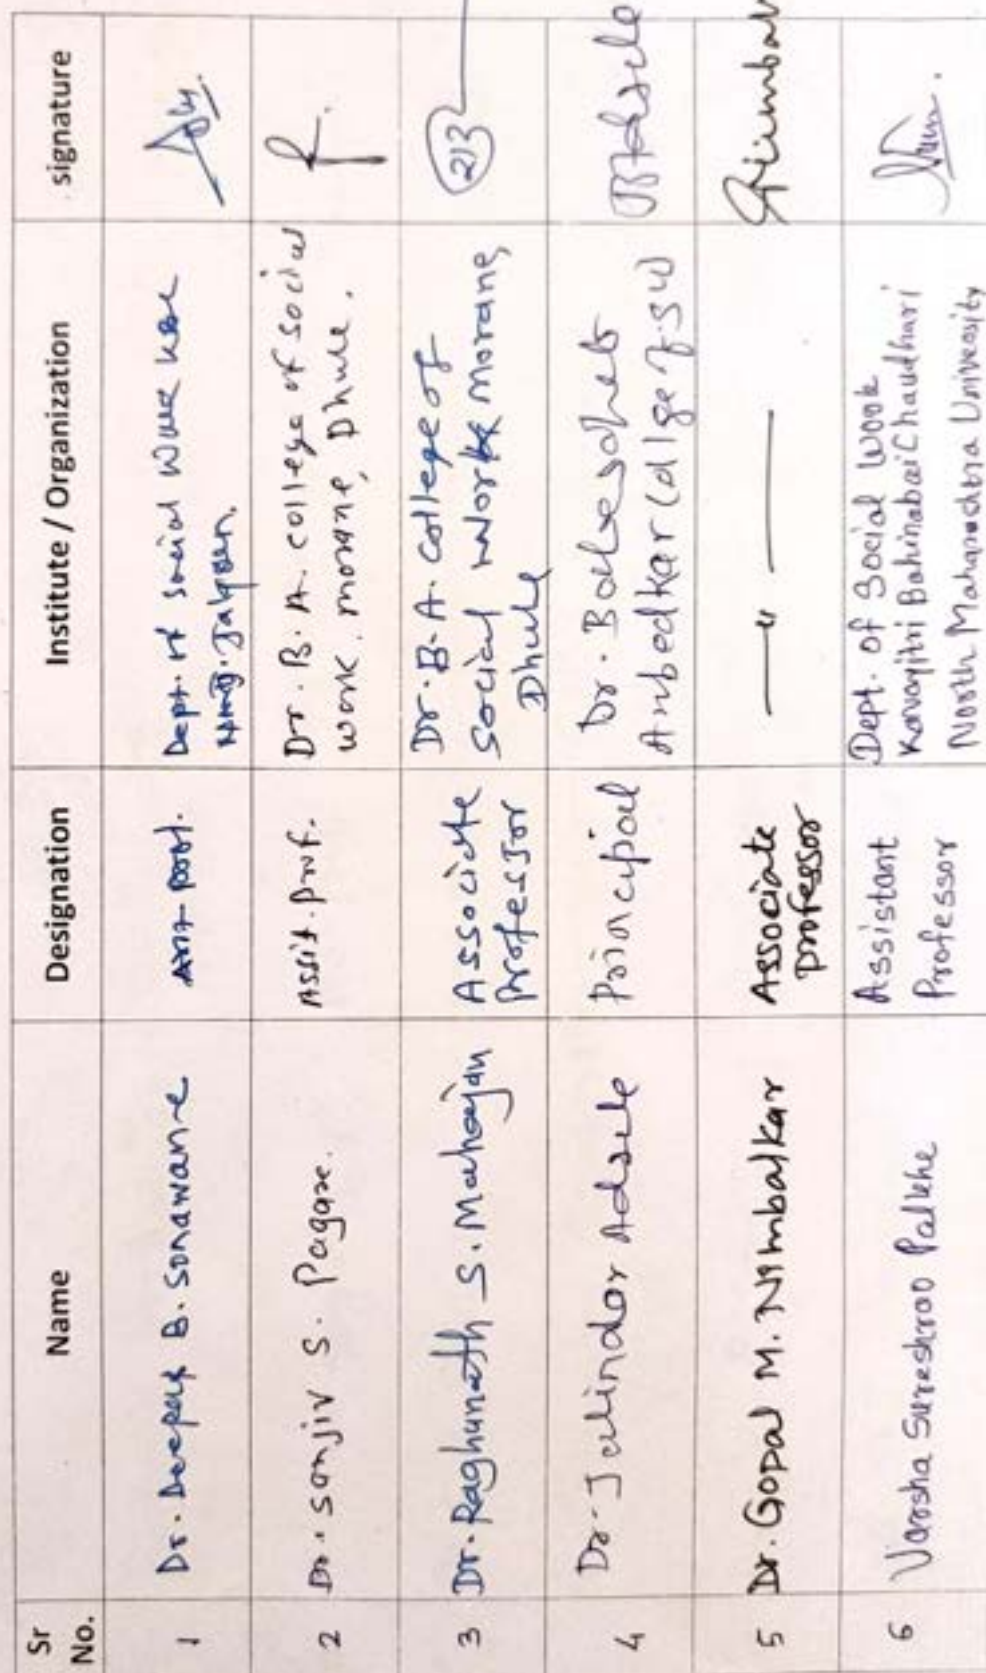 Sr
No.
Name
Designation
Institute / Organization
signature
1
Dr. Deepak B. Sonawane
Dept. of social
Jalgaon.
2
Dr. Sanjiv S. Pagare.
Assit. prof.
Dr. B. A. college of social
work. morane, Dhule.
3
Dr. Raghunath S. Mahajan
Associate
Professor
Dr. B. A. College of
Social work morane,
Dhule
4
Dr. Jalindar Adsule
Principal
Dr. Babasaheb
Ambedkar College of SW
5
Dr. Gopal M. Nimbalkar
Associate
professor
— " —
6
Varsha Sureshrao Palkhe
Assistant
Professor
Dept. of Social Work
Kavayitri Bahinabai Chaudhari
North Maharashtra University